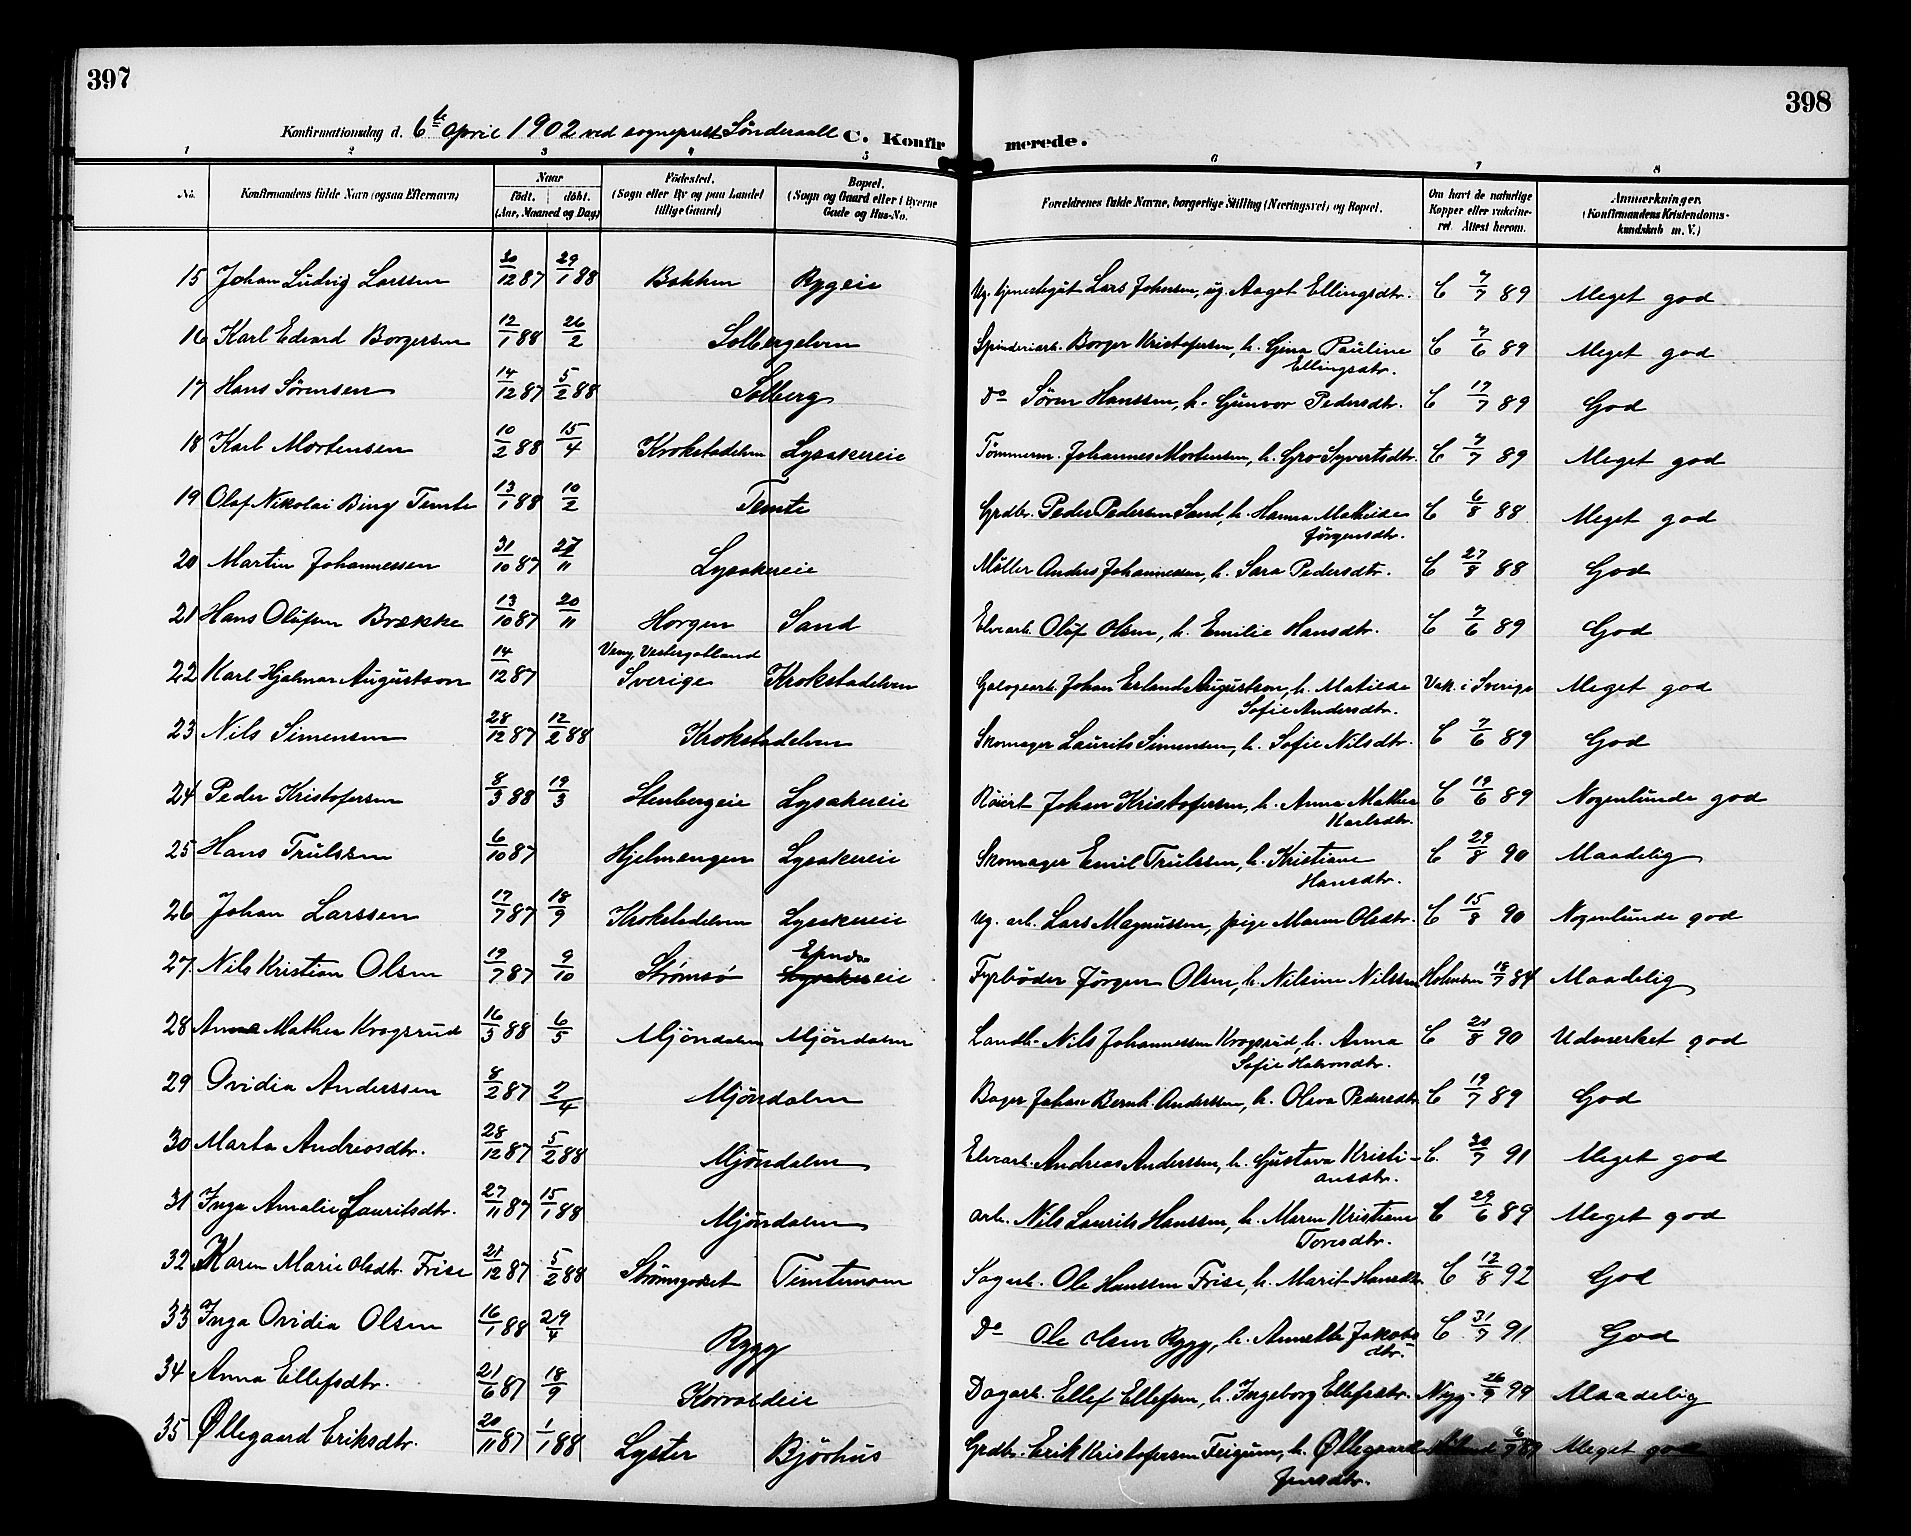 397
398
Konfirmationsdag d. 6te April 1902 ved sogneprest Sönderaall C. Konfirmerede.
1 2 3 4 5 6 7 8
No. Konfirmandens fulde Navn (ogsaa Efternavn) Naar födt. döbt. (Aar, Maaned og Dag) Födested. (Sogn eller By og paa Landet tillige Gaard) Bopæl. (Sogn og Gaard eller i Byerne Gade og Hus-No. Forældrenes fulde Navne, borgerlige Stilling (Næringsvei) og Bopæl. Om havt de naturlige Kopper eller vaksineret. Attest herom. Anmærkninger. (Konfirmandens Kristendomskundskab m. V.)
15 Johan Ludvig Larssen 30/12 87 29/1 88 Bakken Rygeie Ug. tjenestegut Lars Johnsen, ug. Aagot Ellingsdtr. C 7/7 89 Meget god
16 Karl Edvard Borgersen 12/1 88 26/2 Solbergelven Spinderiarb. Borger Kristofersen, h. Gina Pauline Ellingsdtr. C 7/6 89 Meget god
17 Hans Sørensen 14/12 87 5/2 88 Solberg Do Søren Hanssen, h. Gunvor Pedersdtr. C 17/7 89 God
18 Karl Mortensen 10/2 88 15/4 Krokstadelven Lysakereie Tømmerm. Johannes Mortensen, h. Gro Syvertsdtr. C 7/7 89 Meget god
19 Olaf Nikolai Bing Temte 13/1 88 10/2 Temte Grdbr. Peder Pedersen Sand, h. Hanna Mathilde Jörgensdtr. C 6/8 88 Meget god
20 Martin Johannessen 31/10 87 27/11 Lysakereie Møller Anders Johannessen, h. Sara Pedersdtr. C 27/8 88 God
21 Hans Olufsen Brække 13/10 87 20/11 Horgen Sand Elvearb. Oluf Olsen, h. Emilie Hansdtr. C 7/6 89 God
22 Karl Hjalmar Augustson 14/12 87 Veng, Vestergötland Sverige Krokstadelven Galogearb. Johan Erland Augustson, h. Matilde Sofie Andersdtr. Vak. i Sverige Meget god
23 Nils Simensen 28/12 87 12/2 88 Krokstadelven Skomager Laurits Simensen, h. Sofie Nilsdtr. C 7/6 89 God
24 Peder Kristofersen 8/3 88 19/3 Stenbergeie Lysakereie Röiert Johan Kristofersen, h. Anna Mathea Karlsdtr. C 19/6 89 Nogenlunde god
25 Hans Trulssen 6/10 87 Hjelmengen Lysakereie Skomager Emil Trulssen, h. Kristiane Hansdtr. C 29/8 90 Maadelig
26 Johan Larssen 17/7 87 18/9 Krokstadelven Lysakereie Ug. arb. Lars Magnussen, pige Maren Olsdtr. C 15/8 90 Nogenlunde god
27 Nils Kristian Olsen 19/7 87 9/10 Strømsö Lysakereie Fyrbøder Jørgen Olsen, h. Nilsine Nilssen 18/7 84 Maadelig
28 Anna Mathea Krogsrud 16/3 88 6/5 Mjöndalen Mjöndalen Landh. Nils Johannessen Krogsrud, h. Anna Sofie Halvorsdtr. C 21/8 90 Udmerket god
29 Ovidia Anderssen 8/2 87 2/4 Mjöndalen Bager Johan Bernh. Anderssen, h. Olava Pedersdtr. C 19/7 89 God
30 Marta Andreasdtr. 28/12 87 5/2 88 Mjöndalen Elvearb. Andreas Anderssen, h. Gustava Kristiansdtr. C. 30/7 91 Meget god
31 Inga Amalie Lauritsdtr. 27/11 87 15/1 88 Mjöndalen arb. Nils Laurits Hanssen, h. Maren Kristiane Toresdtr. C 29/6 89 Meget god
32 Karen Marie Olsdtr. Frise 21/12 87 5/2 88 Strømsgodset Temtemoen Sagarb. Ole Hanssen Frise, h. Marit Hansdtr. C 12/8 92 God
33 Inga Ovidia Olsen 16/1 88 29/4 Rygg Do Ole Olsen Rygg, h. Annette Jakobsdtr. C. 31/7 91 God
34 Anna Ellefsdtr. 21/6 87 18/9 Korvaldeie Dagarb. Ellef Ellefsen, h. Ingeborg Ellefsdtr. Nyg. 26/9 99 Maadelig
35 Øllegaard Eriksdtr. 20/11 87 1/1 88 Lyster Björhus Grdbr. Erik Kristofersen Feigum, h. Øllegaard Jensdtr. Meget god